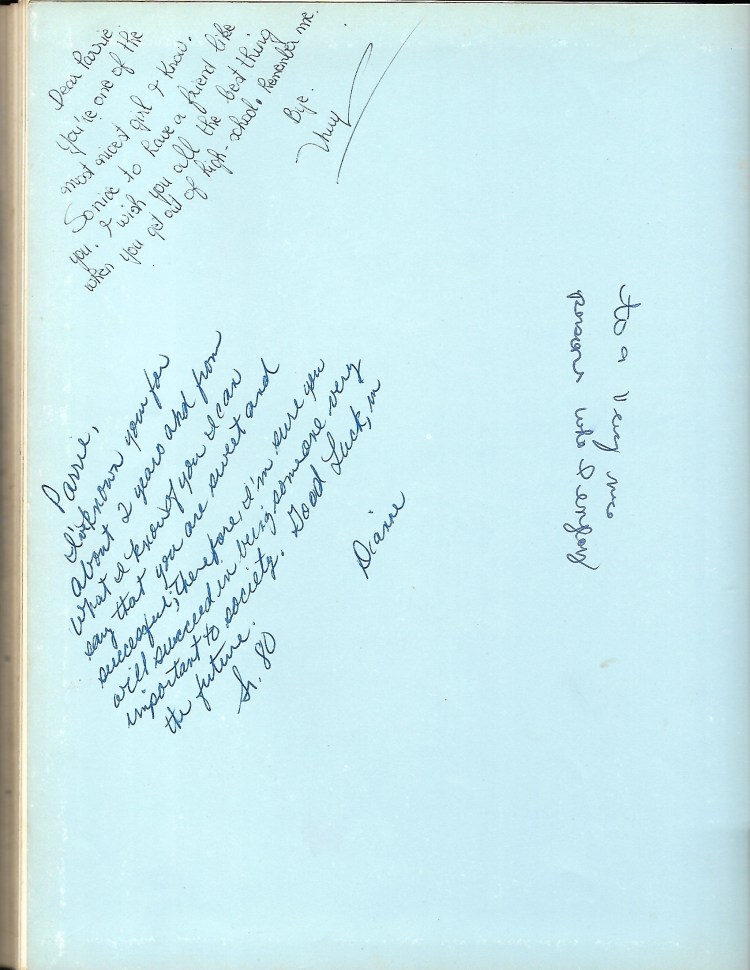 Dear Parrie
You're one of the
most nicest girl I know.
So nice to have a friend like
you. I wish you all the best thing
when you get out of high-school. Remember me.
Bye.
Thuy
Parrie,
I've known your for
about 2 years and from
what I know of you I can
say that you are sweet and
successful; therefore, I'm sure you
will succeed in being someone very
important to society. Good Luck, in
the future.
Dianne
Sr. 80
to a very nice
person who I enjoy